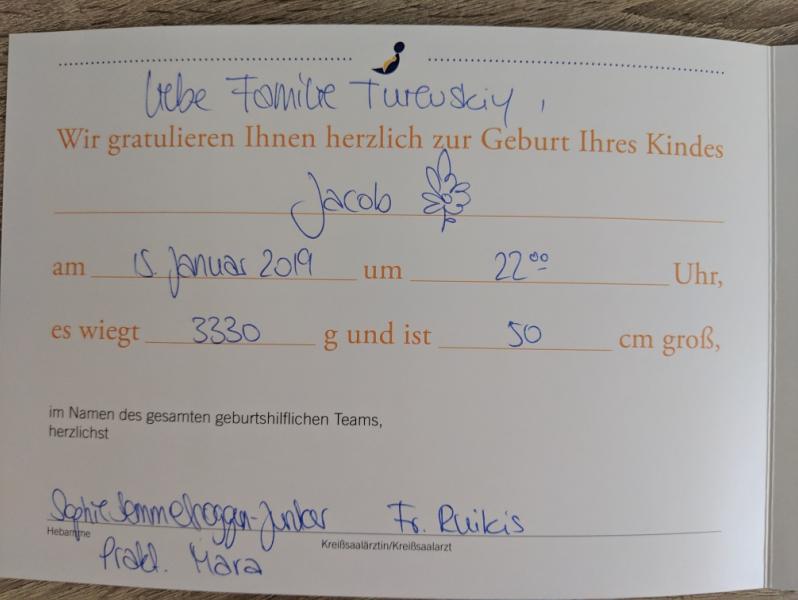 Liebe Familie Turevskiy,
Wir gratulieren Ihnen herzlich zur Geburt Ihres Kindes
Jacob
am 15. Januar 2019 um 22⁰⁰ Uhr,
es wiegt 3330 g und ist 50 cm groß,
im Namen des gesamten geburtshilflichen Teams,
herzlichst
Sophie Fr. Ruikis
Hebamme
Kreißsaalärztin/Kreißsaalarzt
Prakt. Mara